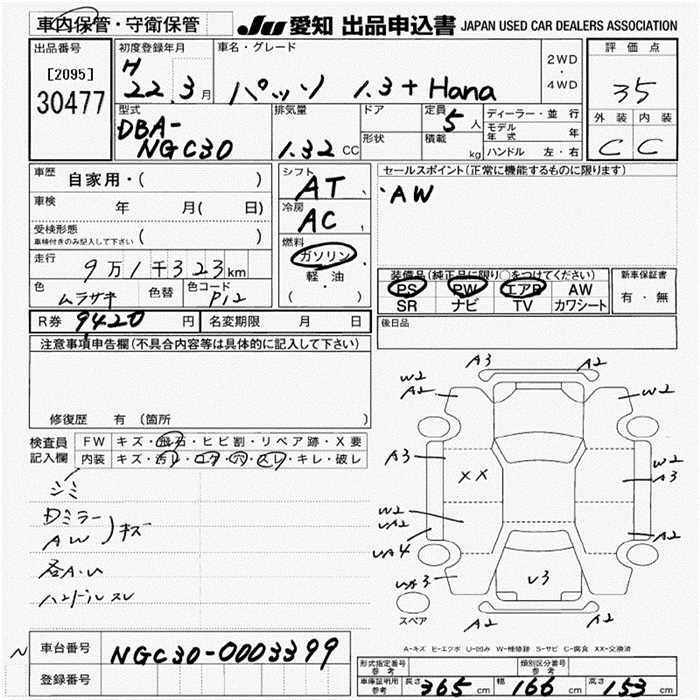 車内保管・守衛保管
JU 愛知 出品申込書 JAPAN USED CAR DEALERS ASSOCIATION
出品番号
[2095]
30477
初度登録年月
H
22.3月
車名・グレード
パッソ 1.3+Hana
2WD
・
4WD
評価点
35
外装 内装
C C
型式
DBA-
NGC30
排気量
1.32 CC
ドア
形状
定員 5人
積載 kg
ディーラー・並行
モデル年式 年
ハンドル 左・右
車歴 自家用・( )
車検 年 月( 日)
受検形態
車検付きのみ記入して下さい ( )
走行 9万1千323km
色 ムラサキ 色替 色コード P12
シフト
AT
冷房
AC
燃料
ガソリン
・
軽油
( )
セールスポイント(正常に機能するものに限ります)
・AW
装備品(純正品に限り○をつけてください)
PS PW エアB AW
SR ナビ TV カワシート
新車保証書
有・無
後日品
R券 9420円 名変期限 月 日
注意事項申告欄(不具合内容等は具体的に記入して下さい)
修復歴 有 (箇所 )
検査員
記入欄
FW キズ・飛石・ヒビ割・リペア跡・X要
内装 キズ・汚レ・コゲ・穴・スレ・キレ・破レ
シミ
Dミラー
AW
キズ
各A.U
ハンドルスレ
A3 A2
W2
A2
W2
A3
XX
W2
A3
W2
UA2
UA4
A2
UA3
U3
A2 A2
スペア
A-キズ E-エクボ U-凹み W-補修跡 S-サビ C-腐食 XX-交換済
車台番号 NGC30-0003399
登録番号
形式指定番号
参考
類別区分番号
参考
車庫証明用
参考
長さ 365 cm 幅 166 cm 高さ 153 cm